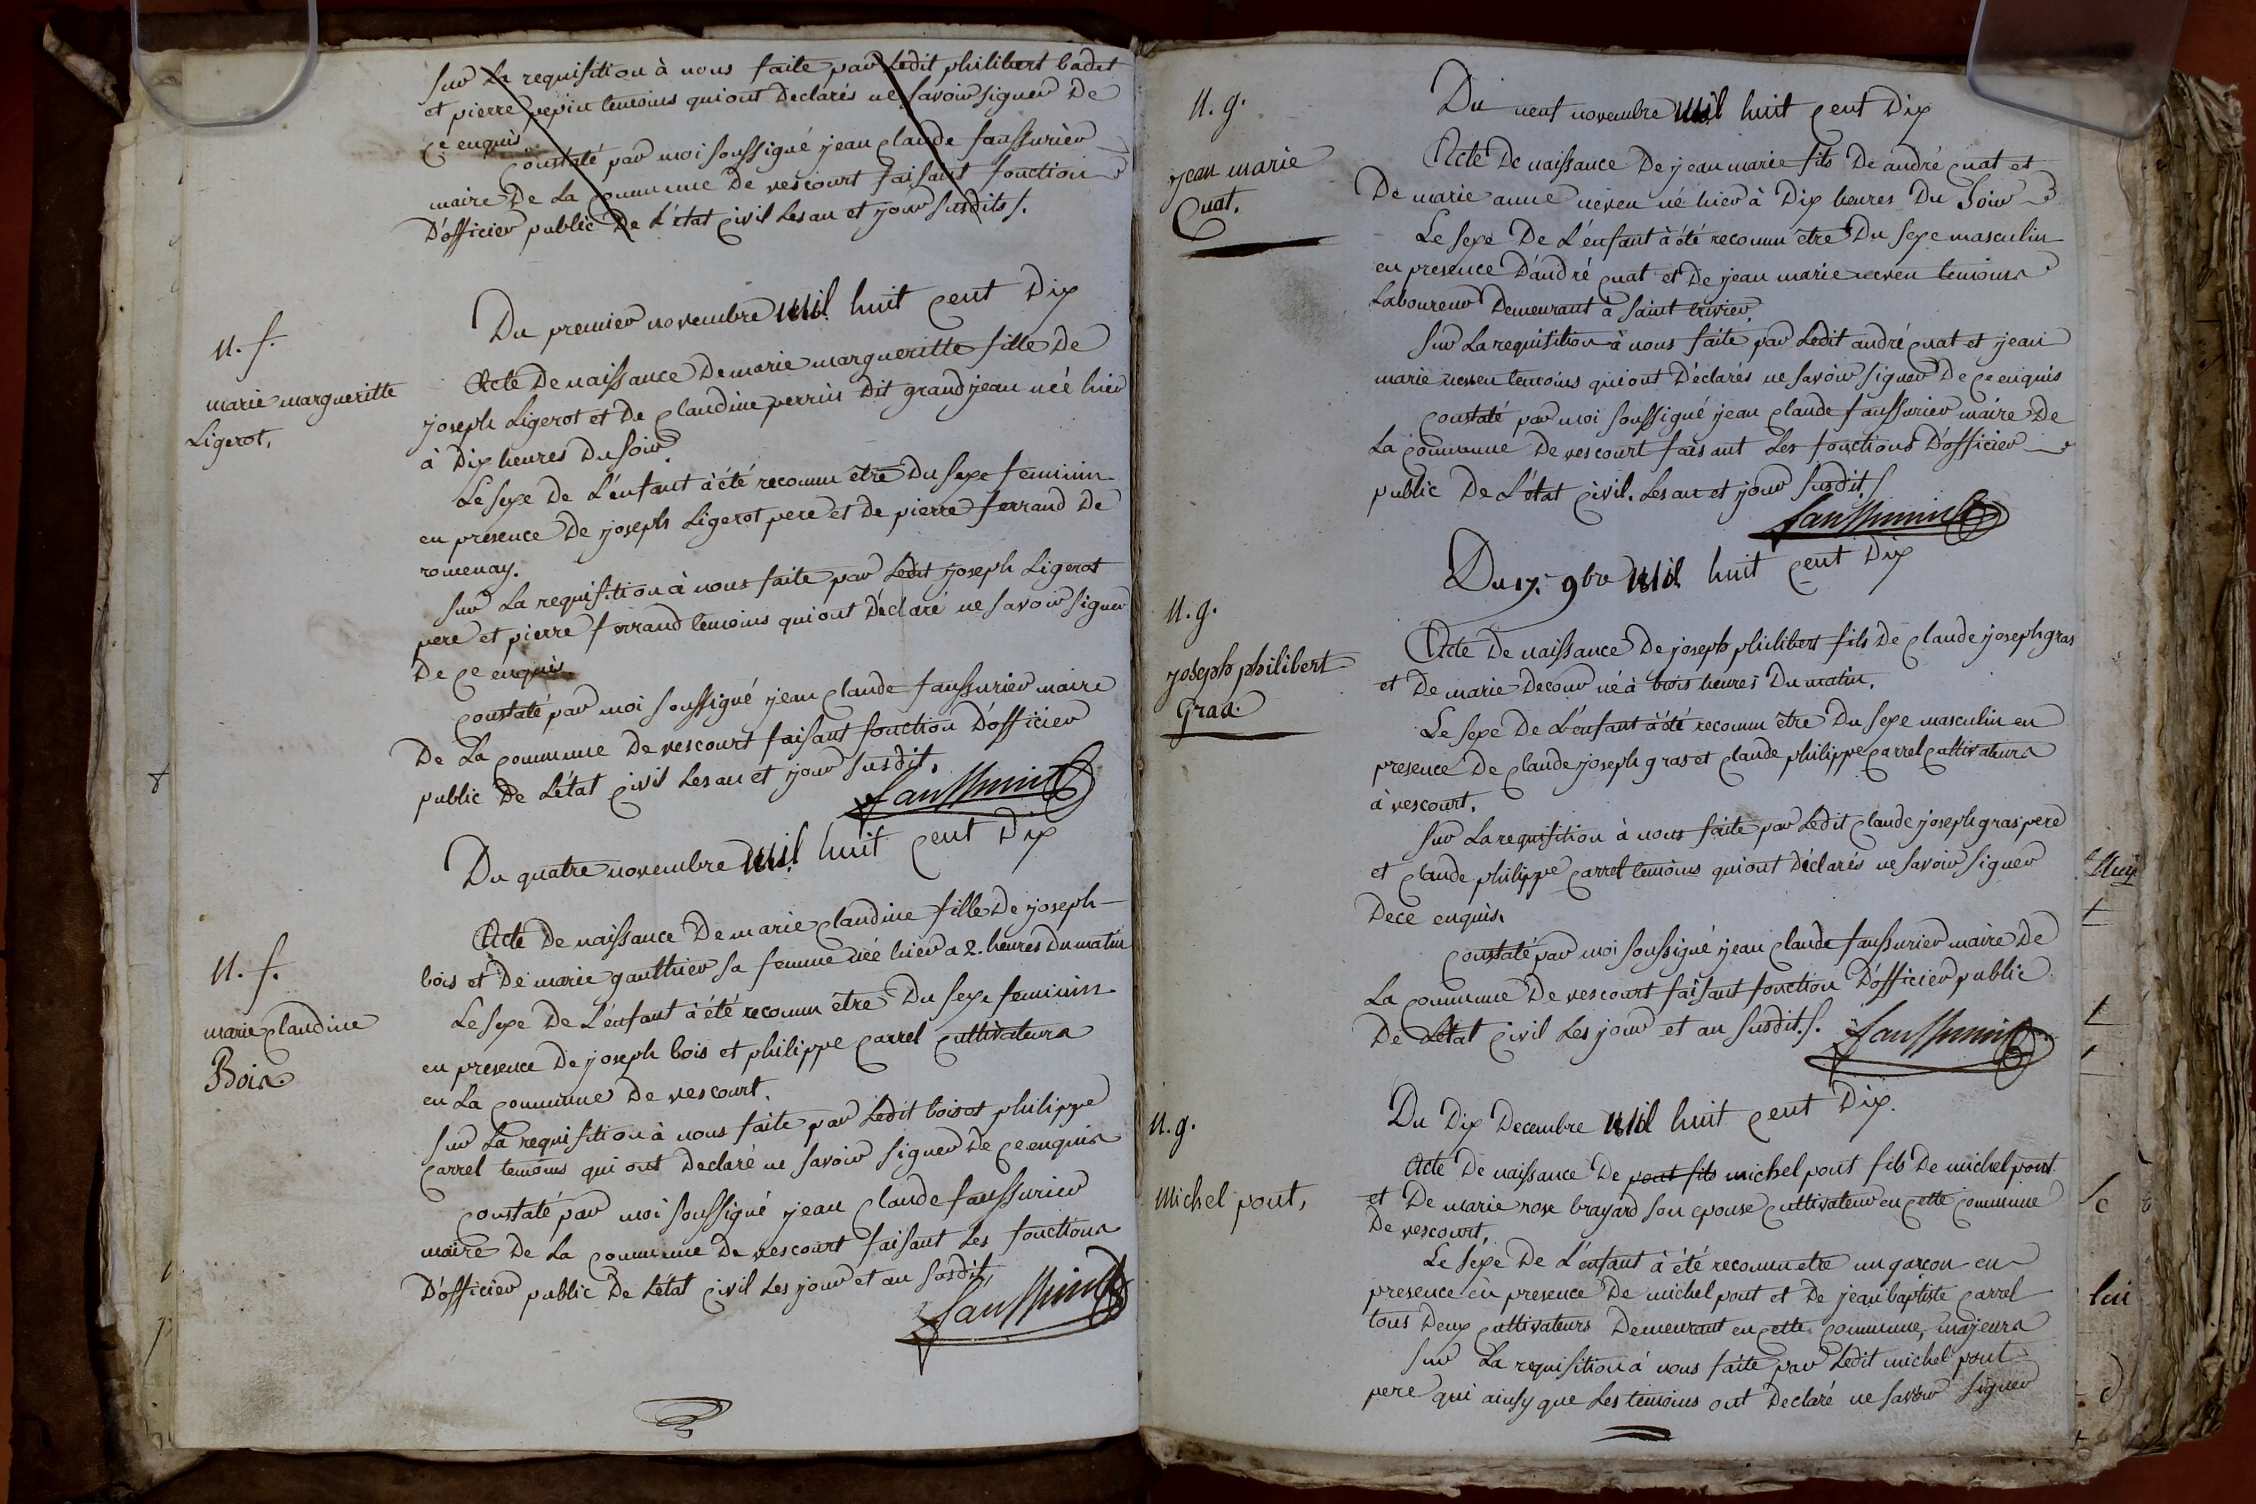 Sur La requisition à nous faite par Ledit philibert badet
et pierre pepin temoins qui ont Declarés ne savoir signer De
Ce enquis.
Constaté par moi soussigné jean Claude faussurier
maire De La Commune De vescourt faisant fonction
D'officier public De L'état Civil Les an et jour susdits./.
Du premier novembre mil huit Cent Dix
n. f.
marie margueritte
Ligerot,
Acte De naissance De marie margueritte fille De
joseph Ligerot et De Claudine perrin Dit grandjean née hier
à Dix heures Du soir
Le sexe De L'enfant à été reconnu etre Du sexe feminin
en presence De joseph Ligerot pere et De pierre ferrand De
romenay.
Sur La requisition à nous faite par Ledit joseph Ligerot
pere et pierre ferrand temoins qui ont Déclaré ne savoir signer
De Ce enquis.
Constaté par moi soussigné jean Claude faussurier maire
De La Commune De vescourt faisant fonction D'officier
public De L'état Civil Les an et jour susdit.
faussurier
Du quatre novembre mil huit Cent Dix
n. f.
marie Claudine
Bois
Acte De naissance De marie Claudine fille De joseph
bois et De marie gauthier sa femme née hier a 2. heures Du matin
Le sexe De L'enfant à été reconnu etre Du sexe feminin
en presence De joseph bois et philippe Carrel Cultivateurs
en La Commune De vescourt.
Sur La requisition à nous faite par Ledit bois et philippe
Carrel temoins qui ont Declaré ne savoir signer De Ce enquis
Constaté par moi soussigné jean Claude faussurier
maire De La Commune De vescourt faisant Les fonctions
D'officier public De L'état Civil Les jour et an susdit,
faussurier
Du neuf novembre mil huit Cent Dix
n. g.
jean marie
Cuat.
Acte De naissance De jean marie fils De andré Cuat et
De marie anne neveu né hier à Dix heures Du Soir
Le sexe De L'enfant à été reconnu etre Du sexe masculin
en presence D'andré Cuat et De jean marie neveu temoins
Laboureur Demeurant à Saint trivier.
Sur La requisition à nous faite par Ledit andré Cuat et jean
marie neveu temoins qui ont Déclarés ne savoir signer De Ce enquis
Constaté par moi soussigné jean Claude faussurier maire De
La Commune De vescourt faisant Les fonctions D'officier
public De L'état Civil. Les an et jour susdit./
faussurier
Du 17. 9bre mil huit Cent Dix
n. g.
joseph philibert
gras.
Acte De naissance De joseph philibert fils De Claude joseph gras
et De marie Decour né à trois heures Du matin.
Le sexe De L'enfant à été reconnu etre Du sexe masculin en
presence De Claude joseph gras et Claude philippe Carrel Cultivateurs
à vescourt.
Sur La requisition à nous faite par Ledit Claude joseph gras pere
et Claude philippe Carrel temoins qui ont Déclarés ne savoir signer
De Ce enquis.
Constaté par moi soussigné jean Claude faussurier maire De
La Commune De vescourt faisant fonction D'officier public
De L'état Civil Les jour et an susdit./.
faussurier
Du Dix Decembre mil huit Cent Dix.
n. g.
Michel pont,
Acte De naissance De pont fils michel pont fils De michel pont
et De marie rose brayard son epouse Cultivateur en Cette Commune
De vescourt,
Le sexe De L'enfant à été reconnu etre un garcon en
presence en presence De michel pont et De jean baptiste Carrel
tous Deux Cultivateurs Demeurant en Cette Commune, majeurs
Sur La requisition à nous faite par Ledit michel pont
pere qui ainsy que Les temoins ont Declaré ne savoir signer